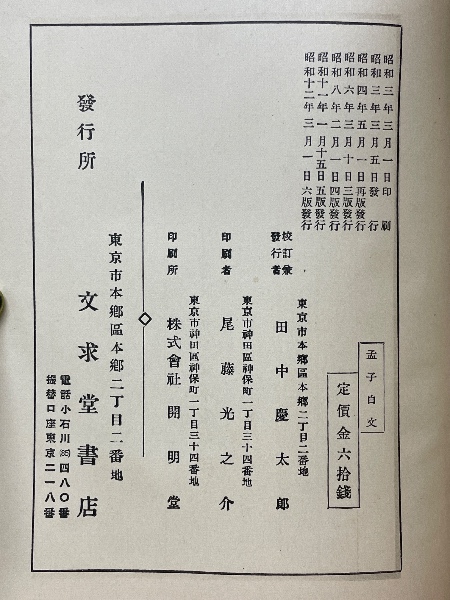 昭和三年三月一日印刷
昭和三年三月五日發行
昭和四年五月一日再版發行
昭和六年三月十日三版發行
昭和八年二月一日四版發行
昭和十一年一月十五日五版發行
昭和十二年三月一日六版發行
孟子白文
定價金六拾錢
東京市本鄉區本鄉二丁目二番地
校訂兼發行者 田中慶太郎
東京市神田區神保町一丁目三十四番地
印刷者 尾藤光之介
東京市神田區神保町一丁目三十四番地
印刷所 株式會社開明堂
發行所
東京市本鄉區本鄉二丁目二番地
文求堂書店
電話小石川㊄四八〇番
振替口座東京二一八番